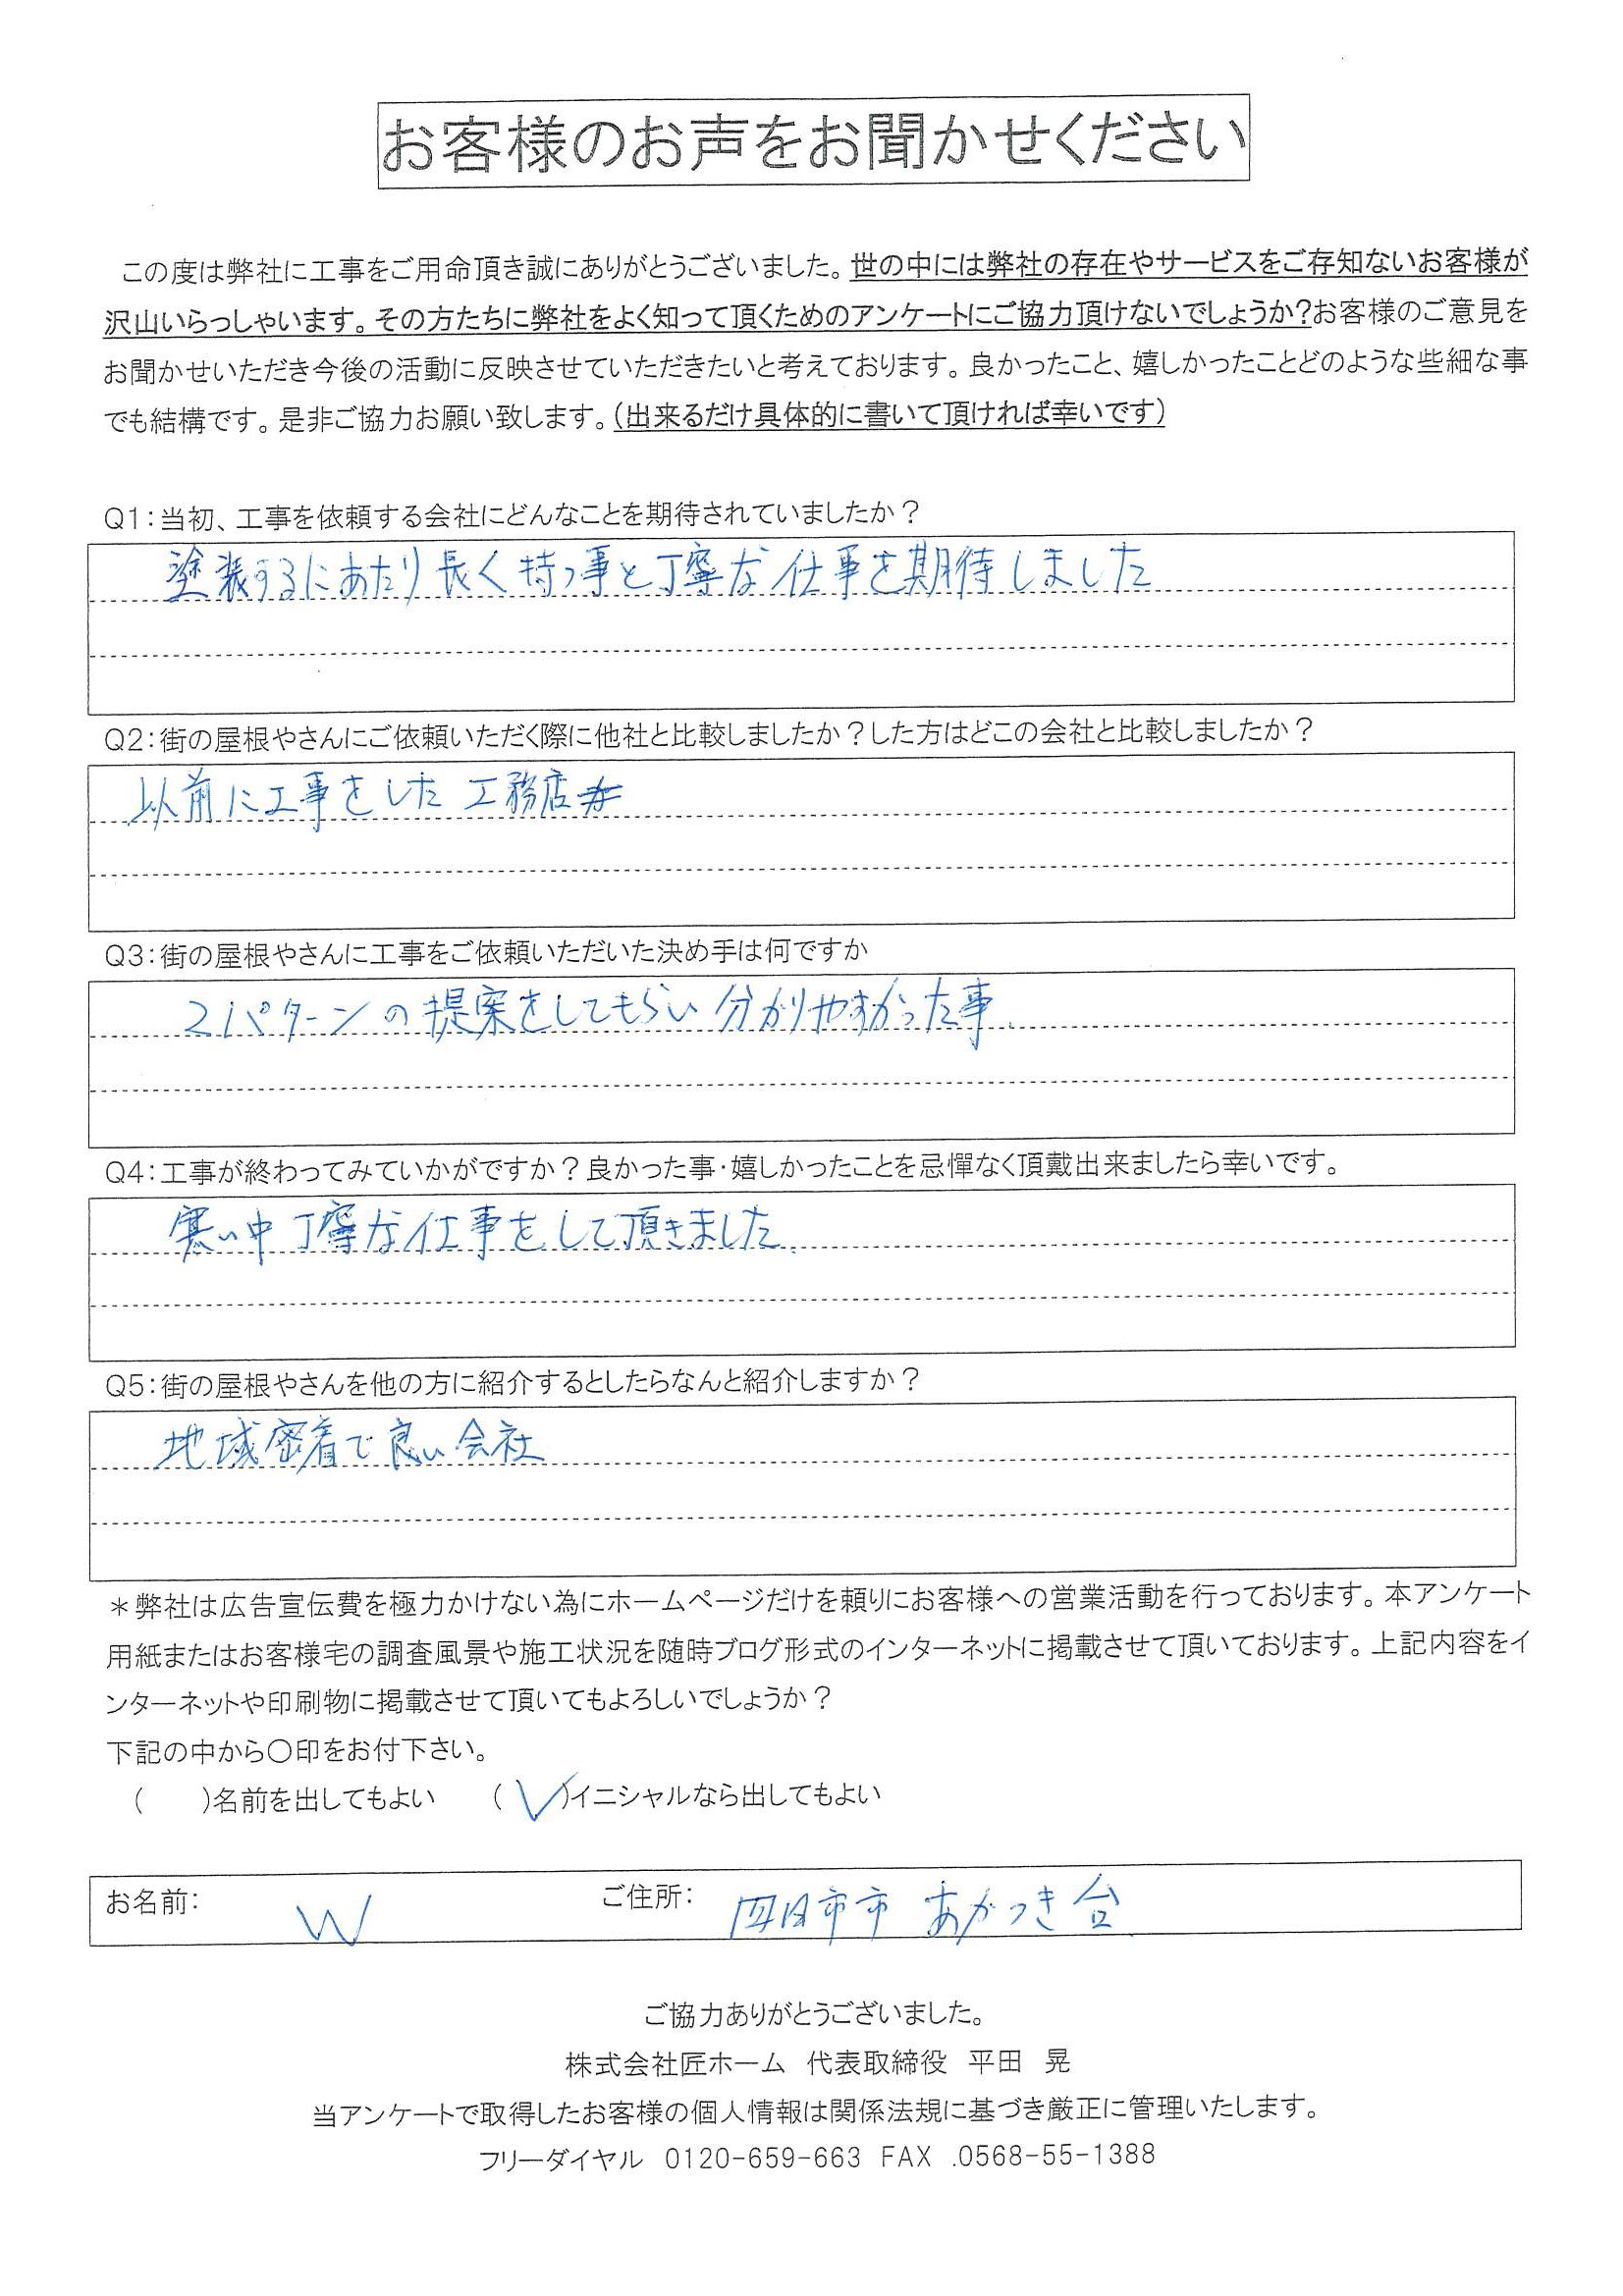 お客様のお声をお聞かせください
この度は弊社に工事をご用命頂き誠にありがとうございました。世の中には弊社の存在やサービスをご存知ないお客様が
沢山いらっしゃいます。その方たちに弊社をよく知って頂くためのアンケートにご協力頂けないでしょうか?お客様のご意見を
お聞かせいただき今後の活動に反映させていただきたいと考えております。良かったこと、嬉しかったことどのような些細な事
でも結構です。是非ご協力お願い致します。(出来るだけ具体的に書いて頂ければ幸いです)
Q1:当初、工事を依頼する会社にどんなことを期待されていましたか?
塗装するにあたり長く持つ事と丁寧な仕事を期待しました
Q2:街の屋根やさんにご依頼いただく際に他社と比較しましたか?した方はどこの会社と比較しましたか?
以前に工事をした工務店
Q3:街の屋根やさんに工事をご依頼いただいた決め手は何ですか
2パターンの提案をしてもらい分かりやすかった事
Q4:工事が終わってみていかがですか?良かった事・嬉しかったことを忌憚なく頂戴出来ましたら幸いです。
寒い中丁寧な仕事をして頂きました
Q5:街の屋根やさんを他の方に紹介するとしたらなんと紹介しますか?
地域密着で良い会社
*弊社は広告宣伝費を極力かけない為にホームページだけを頼りにお客様への営業活動を行っております。本アンケート
用紙またはお客様宅の調査風景や施工状況を随時ブログ形式のインターネットに掲載させて頂いております。上記内容をイ
ンターネットや印刷物に掲載させて頂いてもよろしいでしょうか?
下記の中から○印をお付下さい。
( )名前を出してもよい (✓)イニシャルなら出してもよい
お名前: W ご住所: 四日市市 あかつき台
ご協力ありがとうございました。
株式会社匠ホーム 代表取締役 平田 晃
当アンケートで取得したお客様の個人情報は関係法規に基づき厳正に管理いたします。
フリーダイヤル 0120-659-663 FAX .0568-55-1388